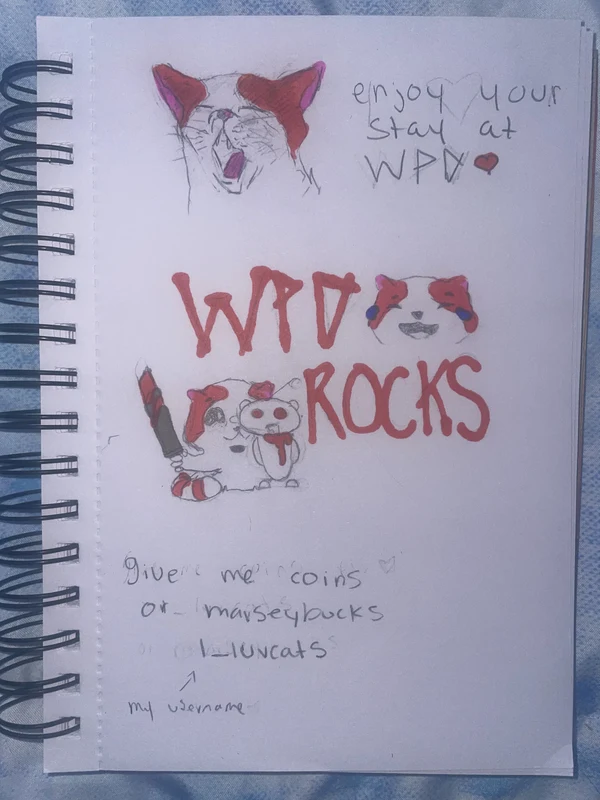 enjoy your
stay at
WPD
WPD
ROCKS
give me coins
or marseybucks
I_luvcats
my username